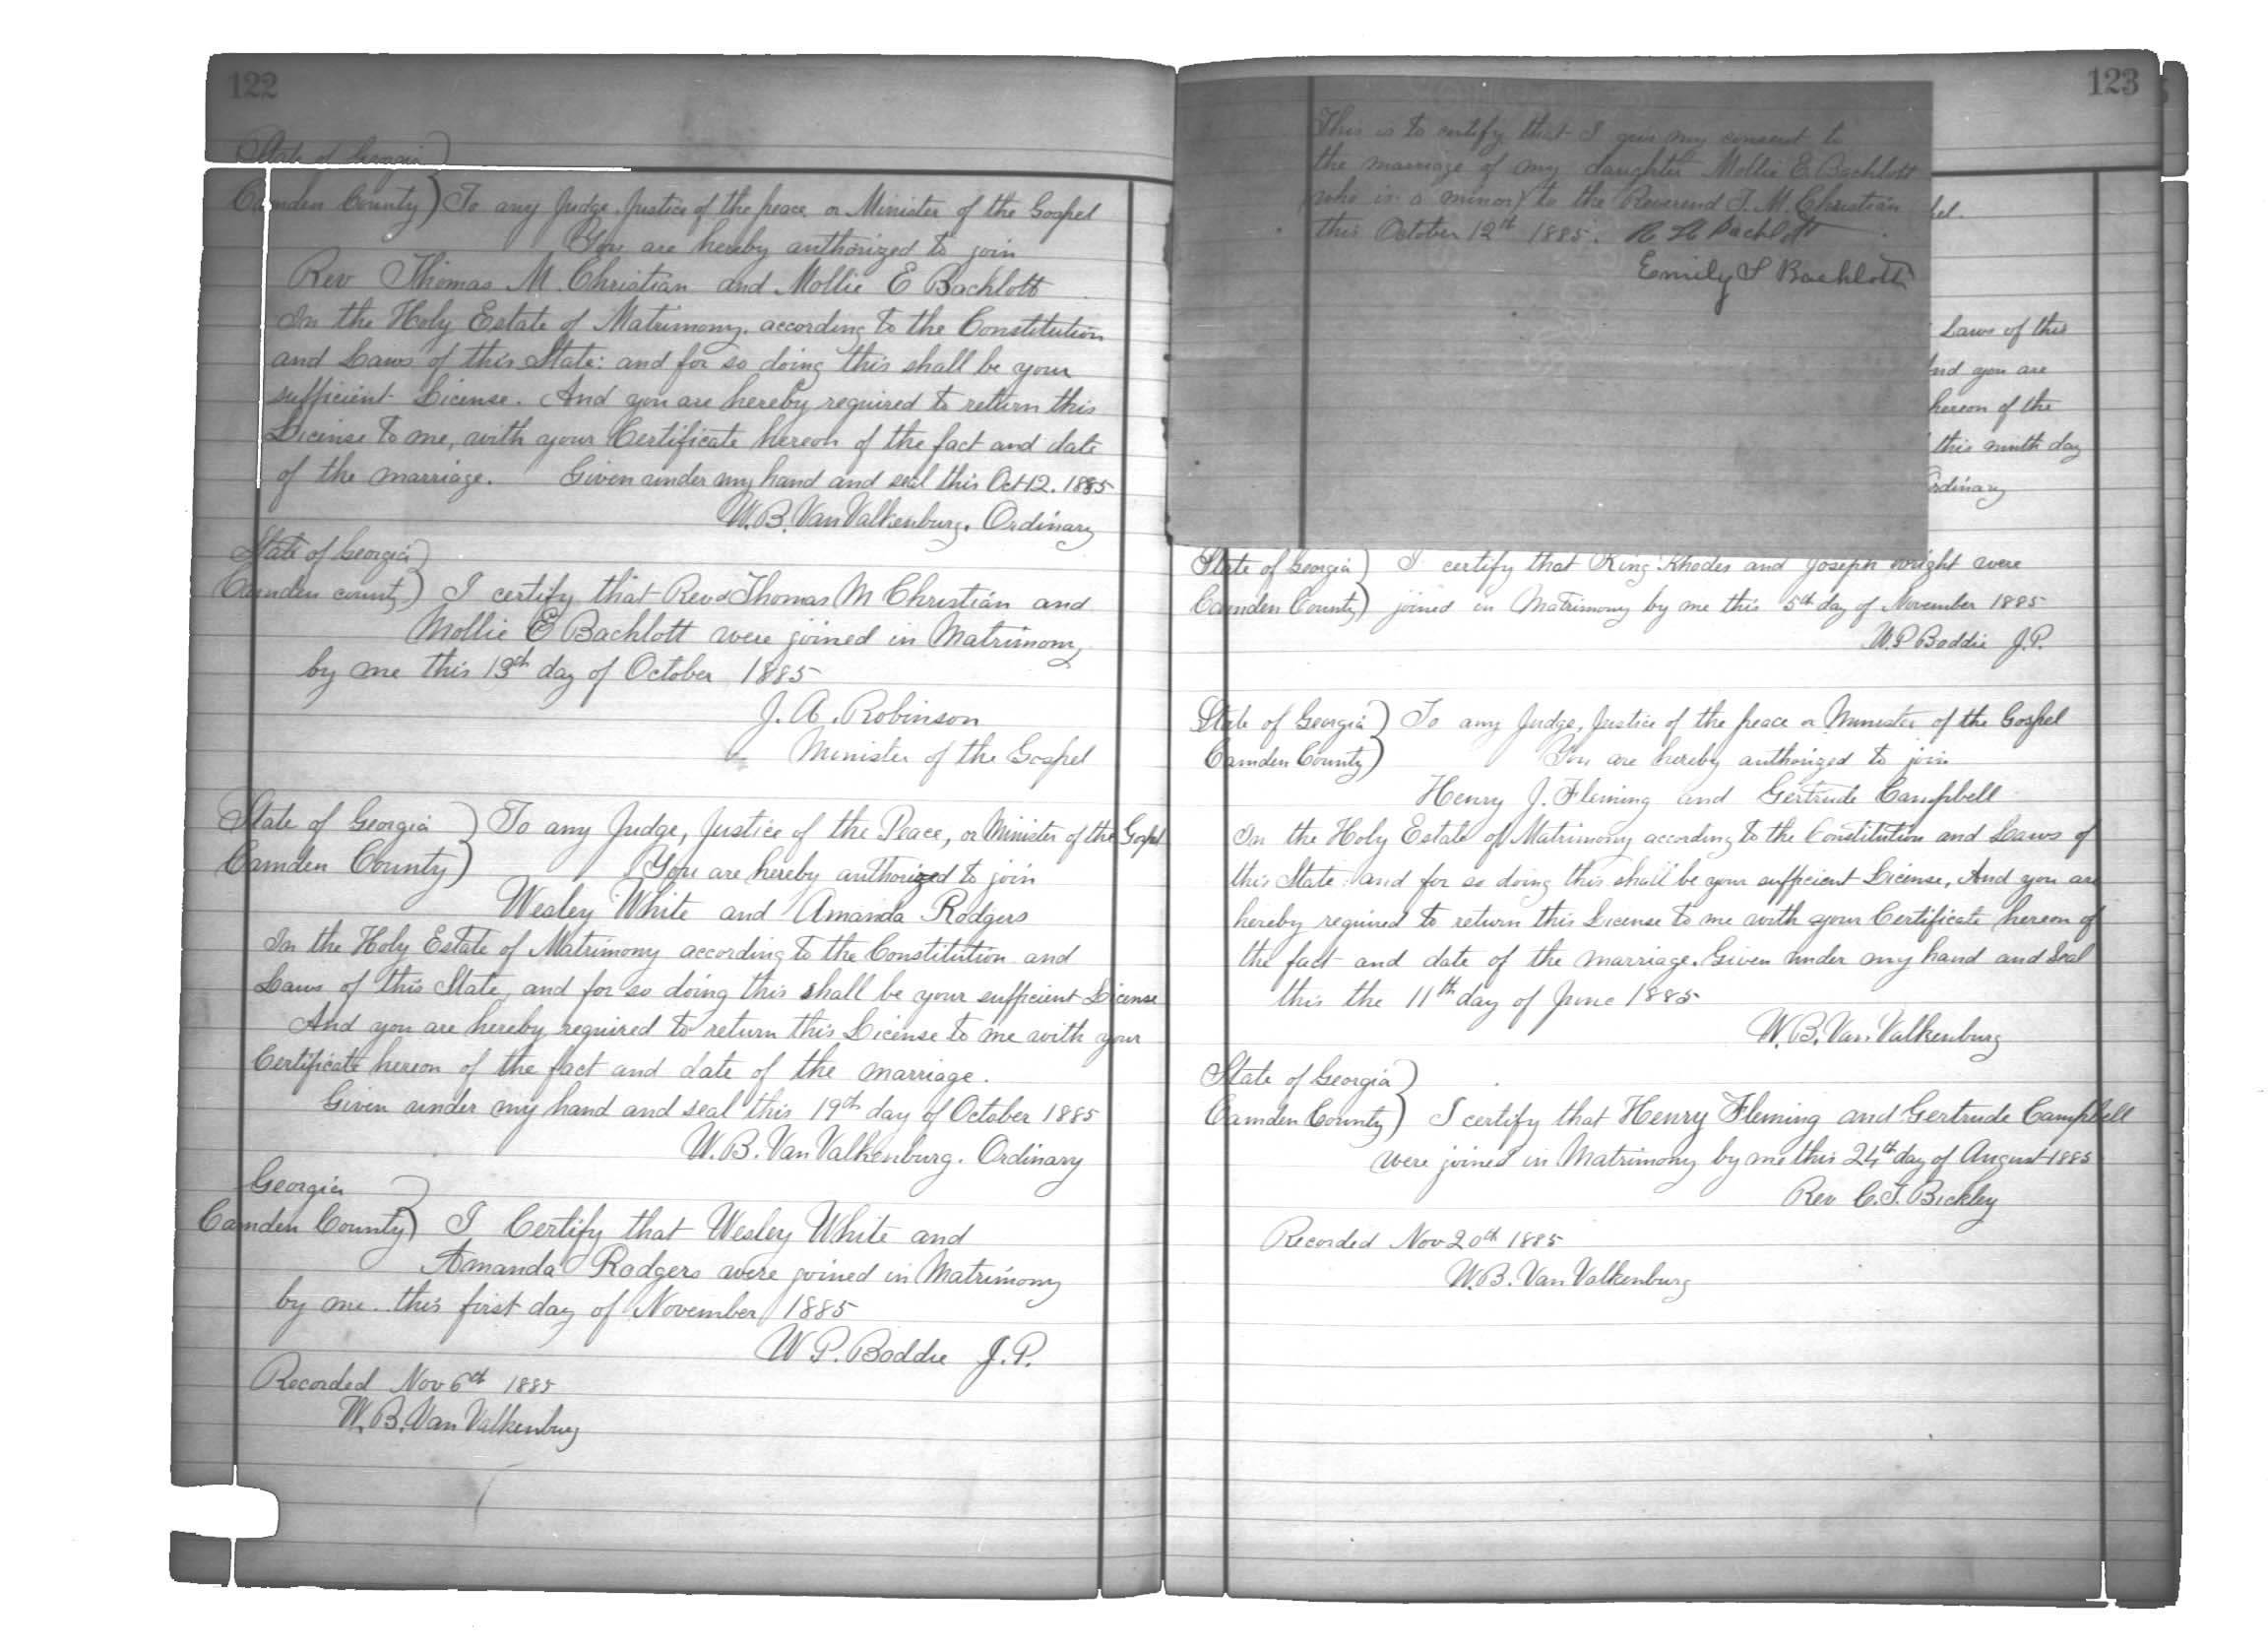 122
State of Georgia )
Camden County ) To any Judge, Justice of the peace, or Minister of the Gospel
You are hereby authorized to join
Rev Thomas M. Christian and Mollie E Bachlott
In the Holy Estate of Matrimony, according to the Constitution
and Laws of this State: and for so doing this shall be your
sufficient License. And you are hereby required to return this
License to me, with your Certificate hereon of the fact and date
of the marriage. Given under my hand and seal this Oct 12. 1885
W. B. Van Valkenburg, Ordinary
State of Georgia )
Camden county ) I certify that Revd Thomas M Christian and
Mollie E Bachlott were joined in Matrimony
by me this 13th day of October 1885
J. A. Robinson
Minister of the Gospel
State of Georgia ) To any Judge, Justice of the Peace, or Minister of the Gospel
Camden County ) You are hereby authorized to join
Wesley White and Amanda Rodgers
In the Holy Estate of Matrimony according to the Constitution and
Laws of this State, and for so doing this shall be your sufficient License
And you are hereby required to return this License to me with your
Certificate hereon of the fact and date of the marriage.
Given under my hand and seal this 19th day of October 1885
W. B. Van Valkenburg. Ordinary
Georgia )
Camden County ) I Certify that Wesley White and
Amanda Rodgers were joined in Matrimony
by me this first day of November 1885
W P. Boddie J. P.
Recorded Nov 6th 1885
W. B. Van Valkenburg
123
This is to certify that I give my consent to
the marriage of my daughter Mollie E Bachlott
(who is a minor) to the Reverend T. M. Christian
this October 12th 1885. Bachlott
Emily S Bachlott
Laws of this
and you are
hereon of the
this ninth day
Ordinary
State of Georgia ) I certify that King Rhodes and Joseph Wright were
Camden County ) joined in Matrimony by me this 5th day of November 1885
W. P Boddie J. P.
State of Georgia ) To any Judge, Justice of the peace or Minister of the Gospel
Camden County ) You are hereby authorized to join
Henry J. Fleming and Gertrude Campbell
In the Holy Estate of Matrimony according to the Constitution and Laws of
this State: and for so doing this shall be your sufficient License, And you are
hereby required to return this License to me with your Certificate hereon of
the fact and date of the marriage. Given under my hand and Seal
this the 11th day of June 1885
W. B. Van Valkenburg
State of Georgia )
Camden County ) I certify that Henry Fleming and Gertrude Campbell
were joined in Matrimony by me this 24th day of August 1885
Rev C. T. Bickley
Recorded Nov 20th 1885
W. B. Van Valkenburg